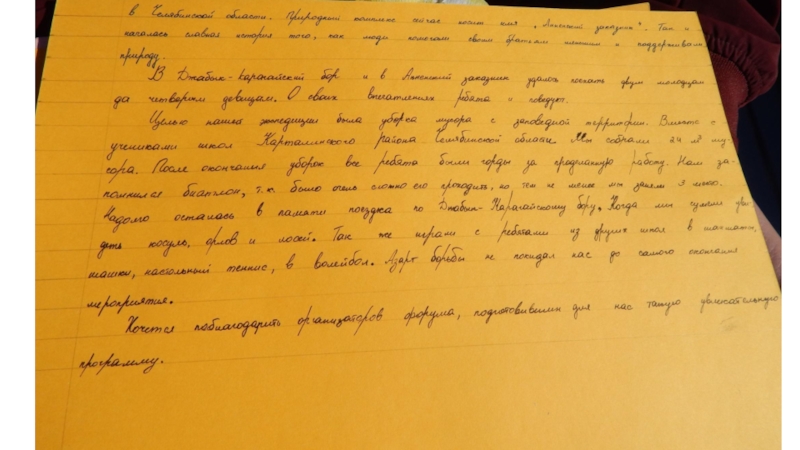 в Челябинской области. Природный комплекс сейчас носит имя „Анненский заказник". Так и
началась славная история того, как люди помогали своим братьям меньшим и поддерживали
природу.
В Джабык-Карагайский бор и в Анненский заказник удалось поехать двум молодцам
да четверым девицам. О своих впечатлениях ребята и поведуют.
Целью нашей экспедиции была уборка мусора с заповедной территории. Вместе с
учениками школ Карталинского района Челябинской области мы собрали 24 м³ му-
сора. После окончания уборки все ребята были горды за проделанную работу. Нам за-
помнился биатлон, т.к. было очень сложно его проходить, но тем не менее мы заняли 3 место.
Надолго осталась в памяти поездка по Джабык-Карагайскому бору. Когда мы сумели уви-
деть косуль, орлов и лосей. Так же играли с ребятами из других школ в шахматы,
шашки, настольный теннис, в волейбол. Азарт борьбы не покидал нас до самого окончания
мероприятия.
Хочется поблагодарить организаторов форума, подготовивших для нас такую увлекательную
программу.